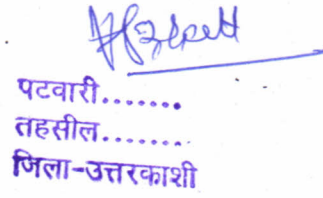 पटवारी........
तहसील........
जिला-उत्तरकाशी